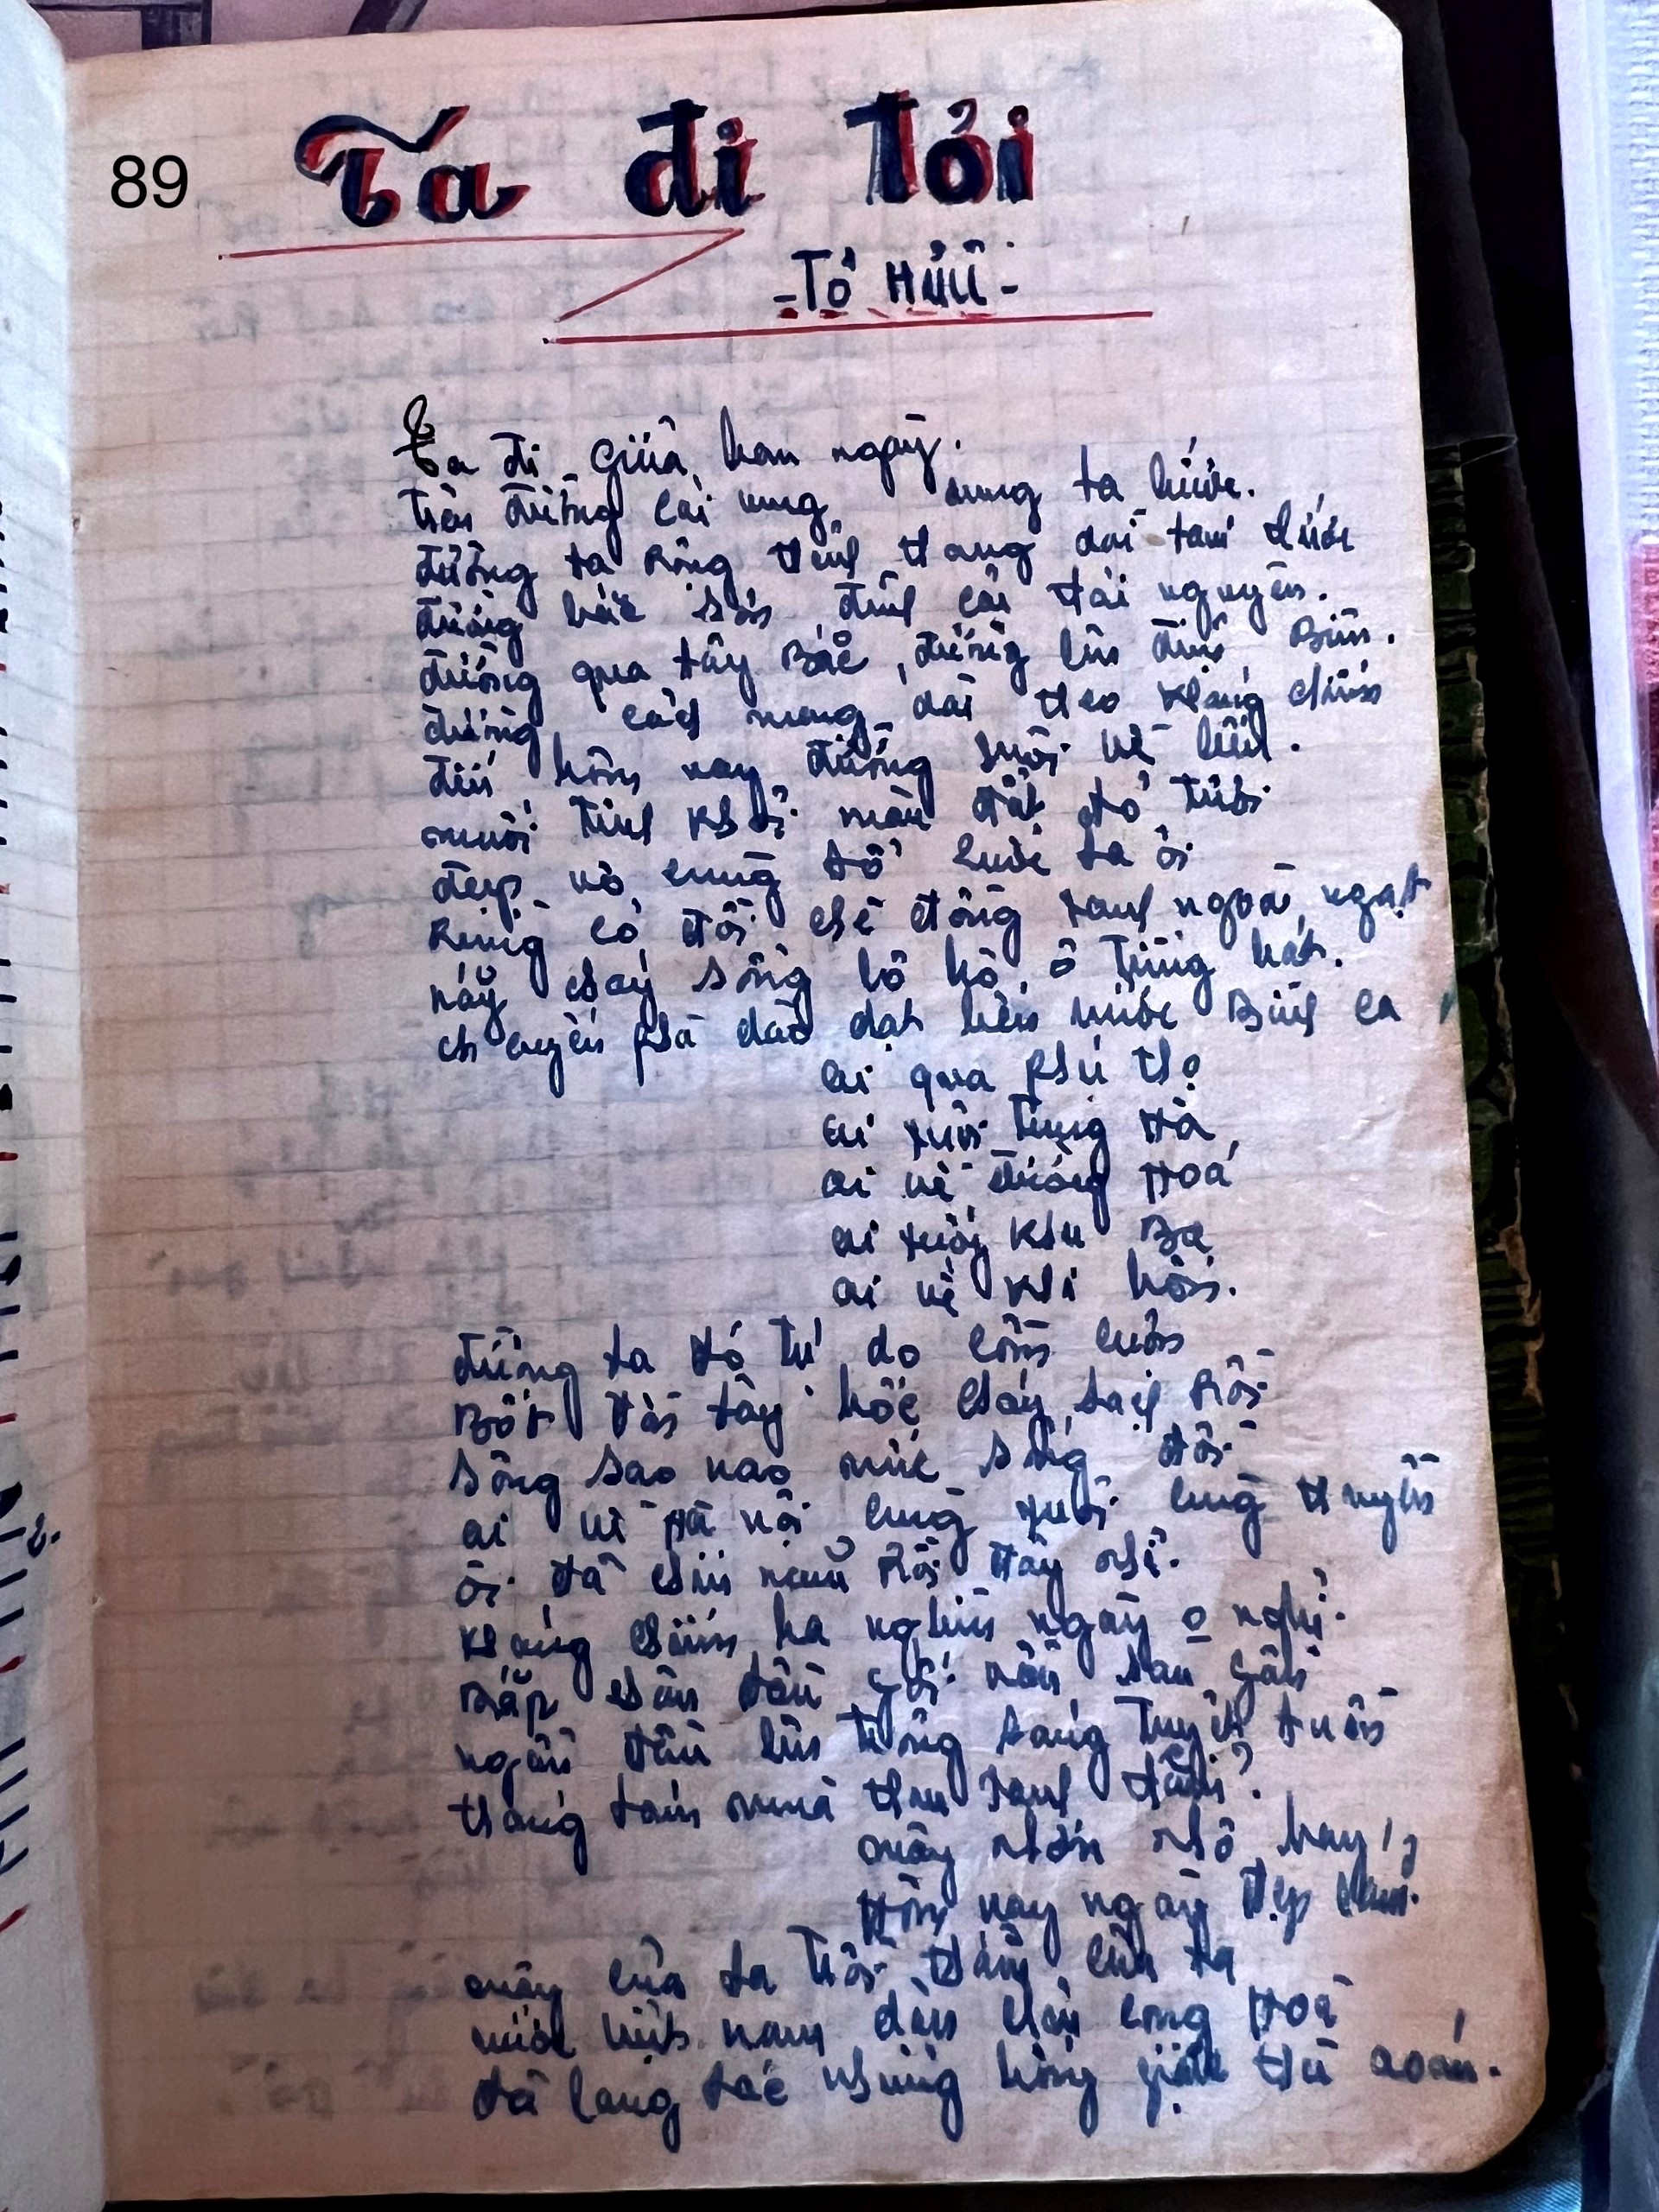 89
Ta đi tới
- Tố Hữu -
Ta đi giữa ban ngày.
trên đường cái ung dung ta bước.
đường ta rộng thênh thang dài tám thước
đường bắc sơn, đình cả thái nguyên.
đường qua tây Bắc, đường lên điện Biên.
đường cách mạng dài theo kháng chiến
đến hôm nay đường xuôi về
muôi tỉnh khởi màu đất đỏ tươi
đẹp vô cùng tổ quốc ta ơi
Rừng cọ đồi chè đồng xanh ngào ngạt
nắng chảy sông lô hò ô tiếng hát.
chuyến phà dào dạt bến nước Bình ca
ai qua phú thọ
ai xuôi trung Hà,
ai về đường Hoá
ai xuống khu Ba
ai về khu bốn.
đường ta đó tự do cuốn
Bốt đồn tây bốc cháy sạch Rồi
sông sao nao nức sóng đôi
ai về Hà nội cùng xuôi cùng thuyền
ôi đã chín năm rồi đấy nhỉ.
kháng chiến ba nghìn ngày o nghỉ.
Bắp chân đầu gối vẫn săn gân
ngẩn đầu lên trông sáng tuyệt trần
tháng tám mùa thu xanh thắm?
mây nhởn nhơ bay
Hôm nay ngày đẹp lắm.
mây của ta trời thắm của ta
nước việt nam dân chủ cộng Hoà
đã lang tác những bóng giặc thù